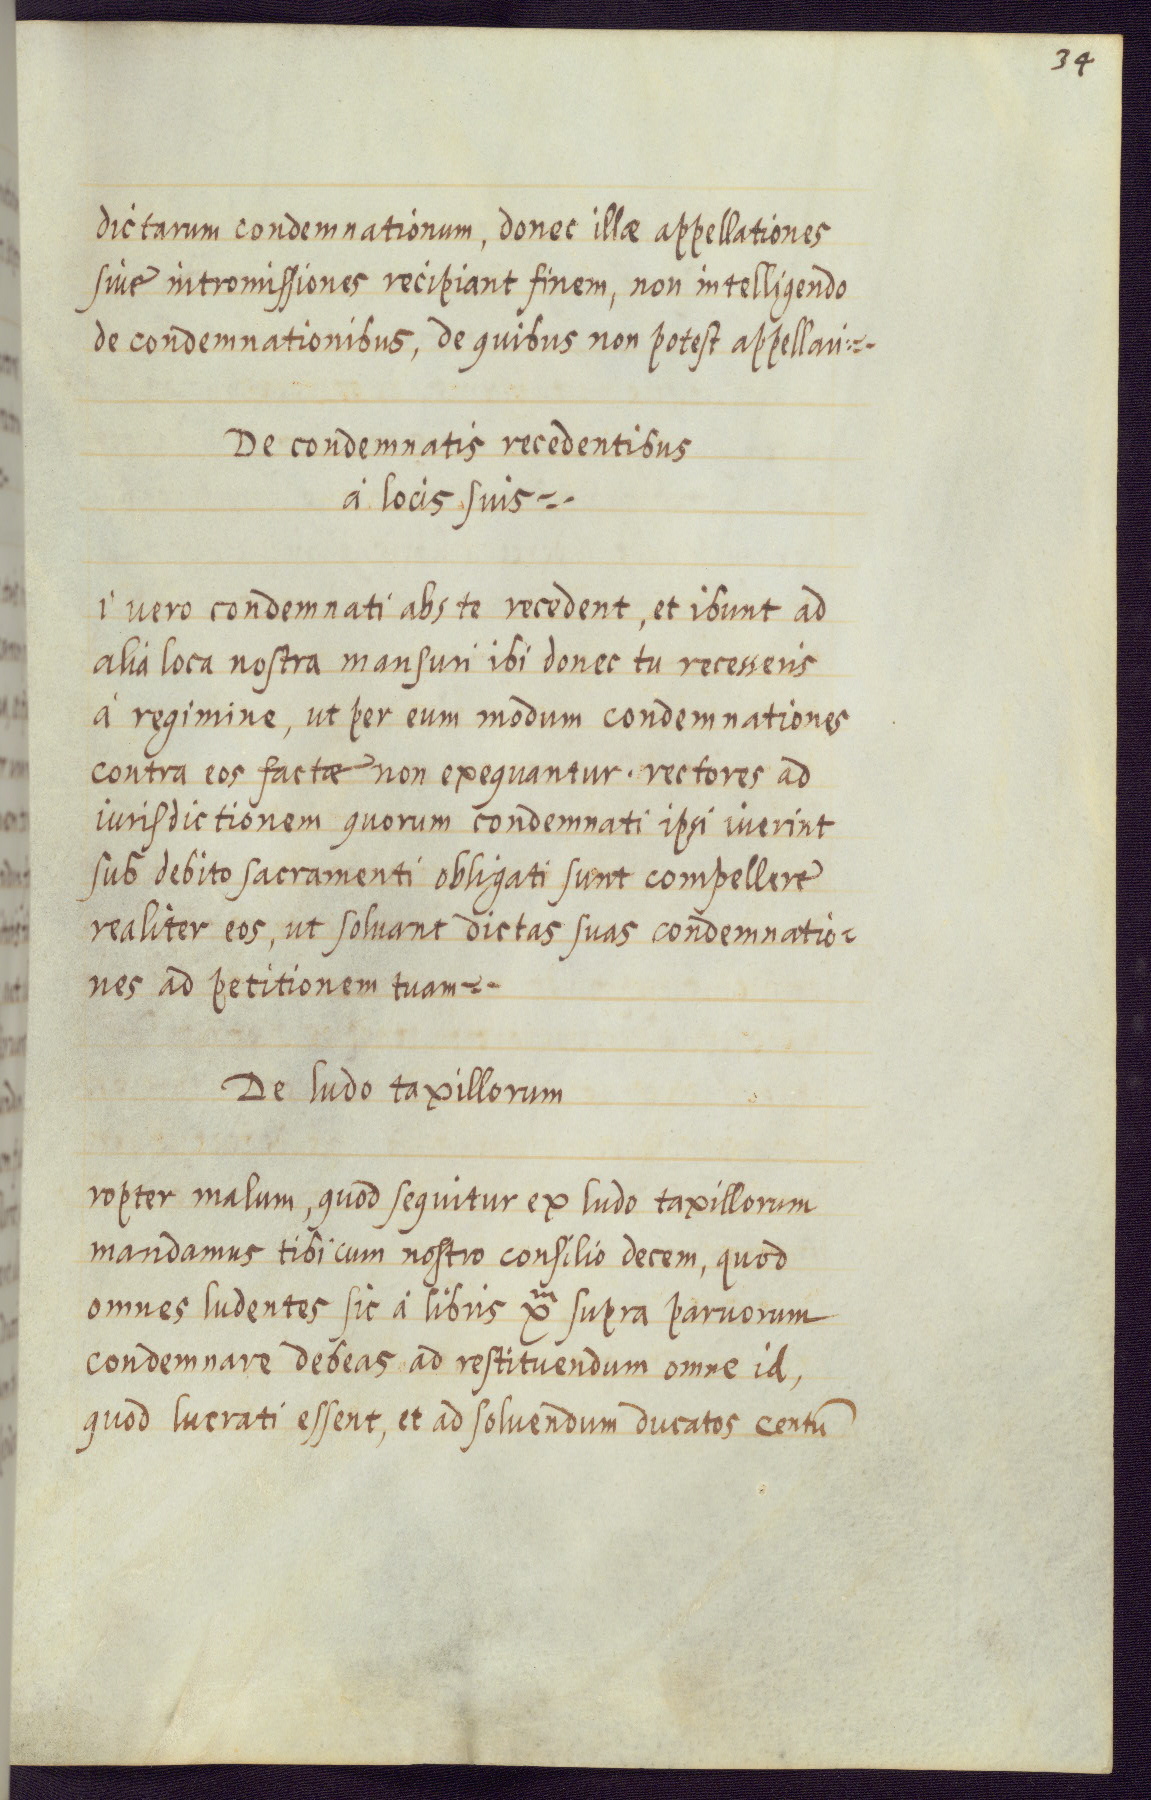 34
dictarum condemnationum, donec illæ appellationes
siue intromissiones recipiant finem, non intelligendo
de condemnationibus, de quibus non potest appellari
De condemnatis recedentibus
à locis suis
i vero condemnati abs te recedent, et ibunt ad
alia loca nostra mansuri ibi donec tu recesseris
à regimine, ut per eum modum condemnationes
contra eos factæ non exequantur. rectores ad
iurisdictionem quorum condemnati ipsi iuerint
sub debito sacramenti obligati sunt compellere
realiter eos, ut soluant dictas suas condemnatio-
nes ad petitionem tuam
De ludo taxillorum
ropter malum, quod sequitur ex ludo taxillorum
mandamus tibi cum nostro consilio decem, quod
omnes ludentes sic à libris x̃ supra paruorum
condemnare debeas ad restituendum omne id,
quod lucrati essent, et ad soluendum ducatos centũ